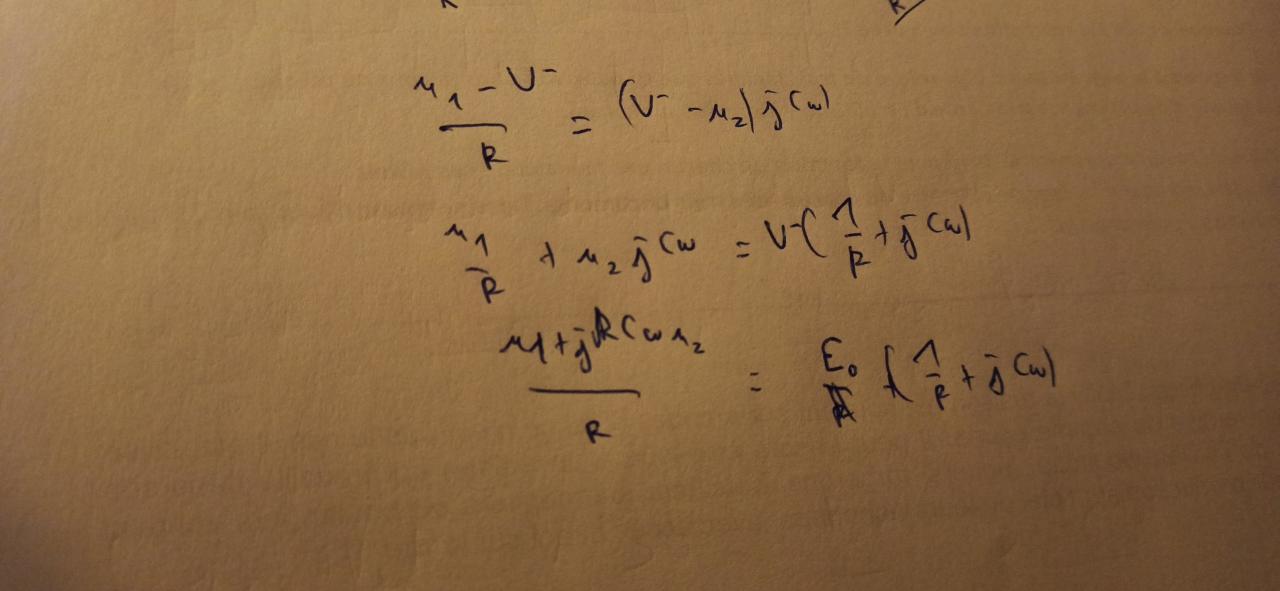 (u₁ - V⁻)/R = (V⁻ - u₂) jCω
u₁/R + u₂ jCω = V⁻(1/R + jCω)
(u₁ + jRCω u₂)/R = E₀ (1/R + jCω)